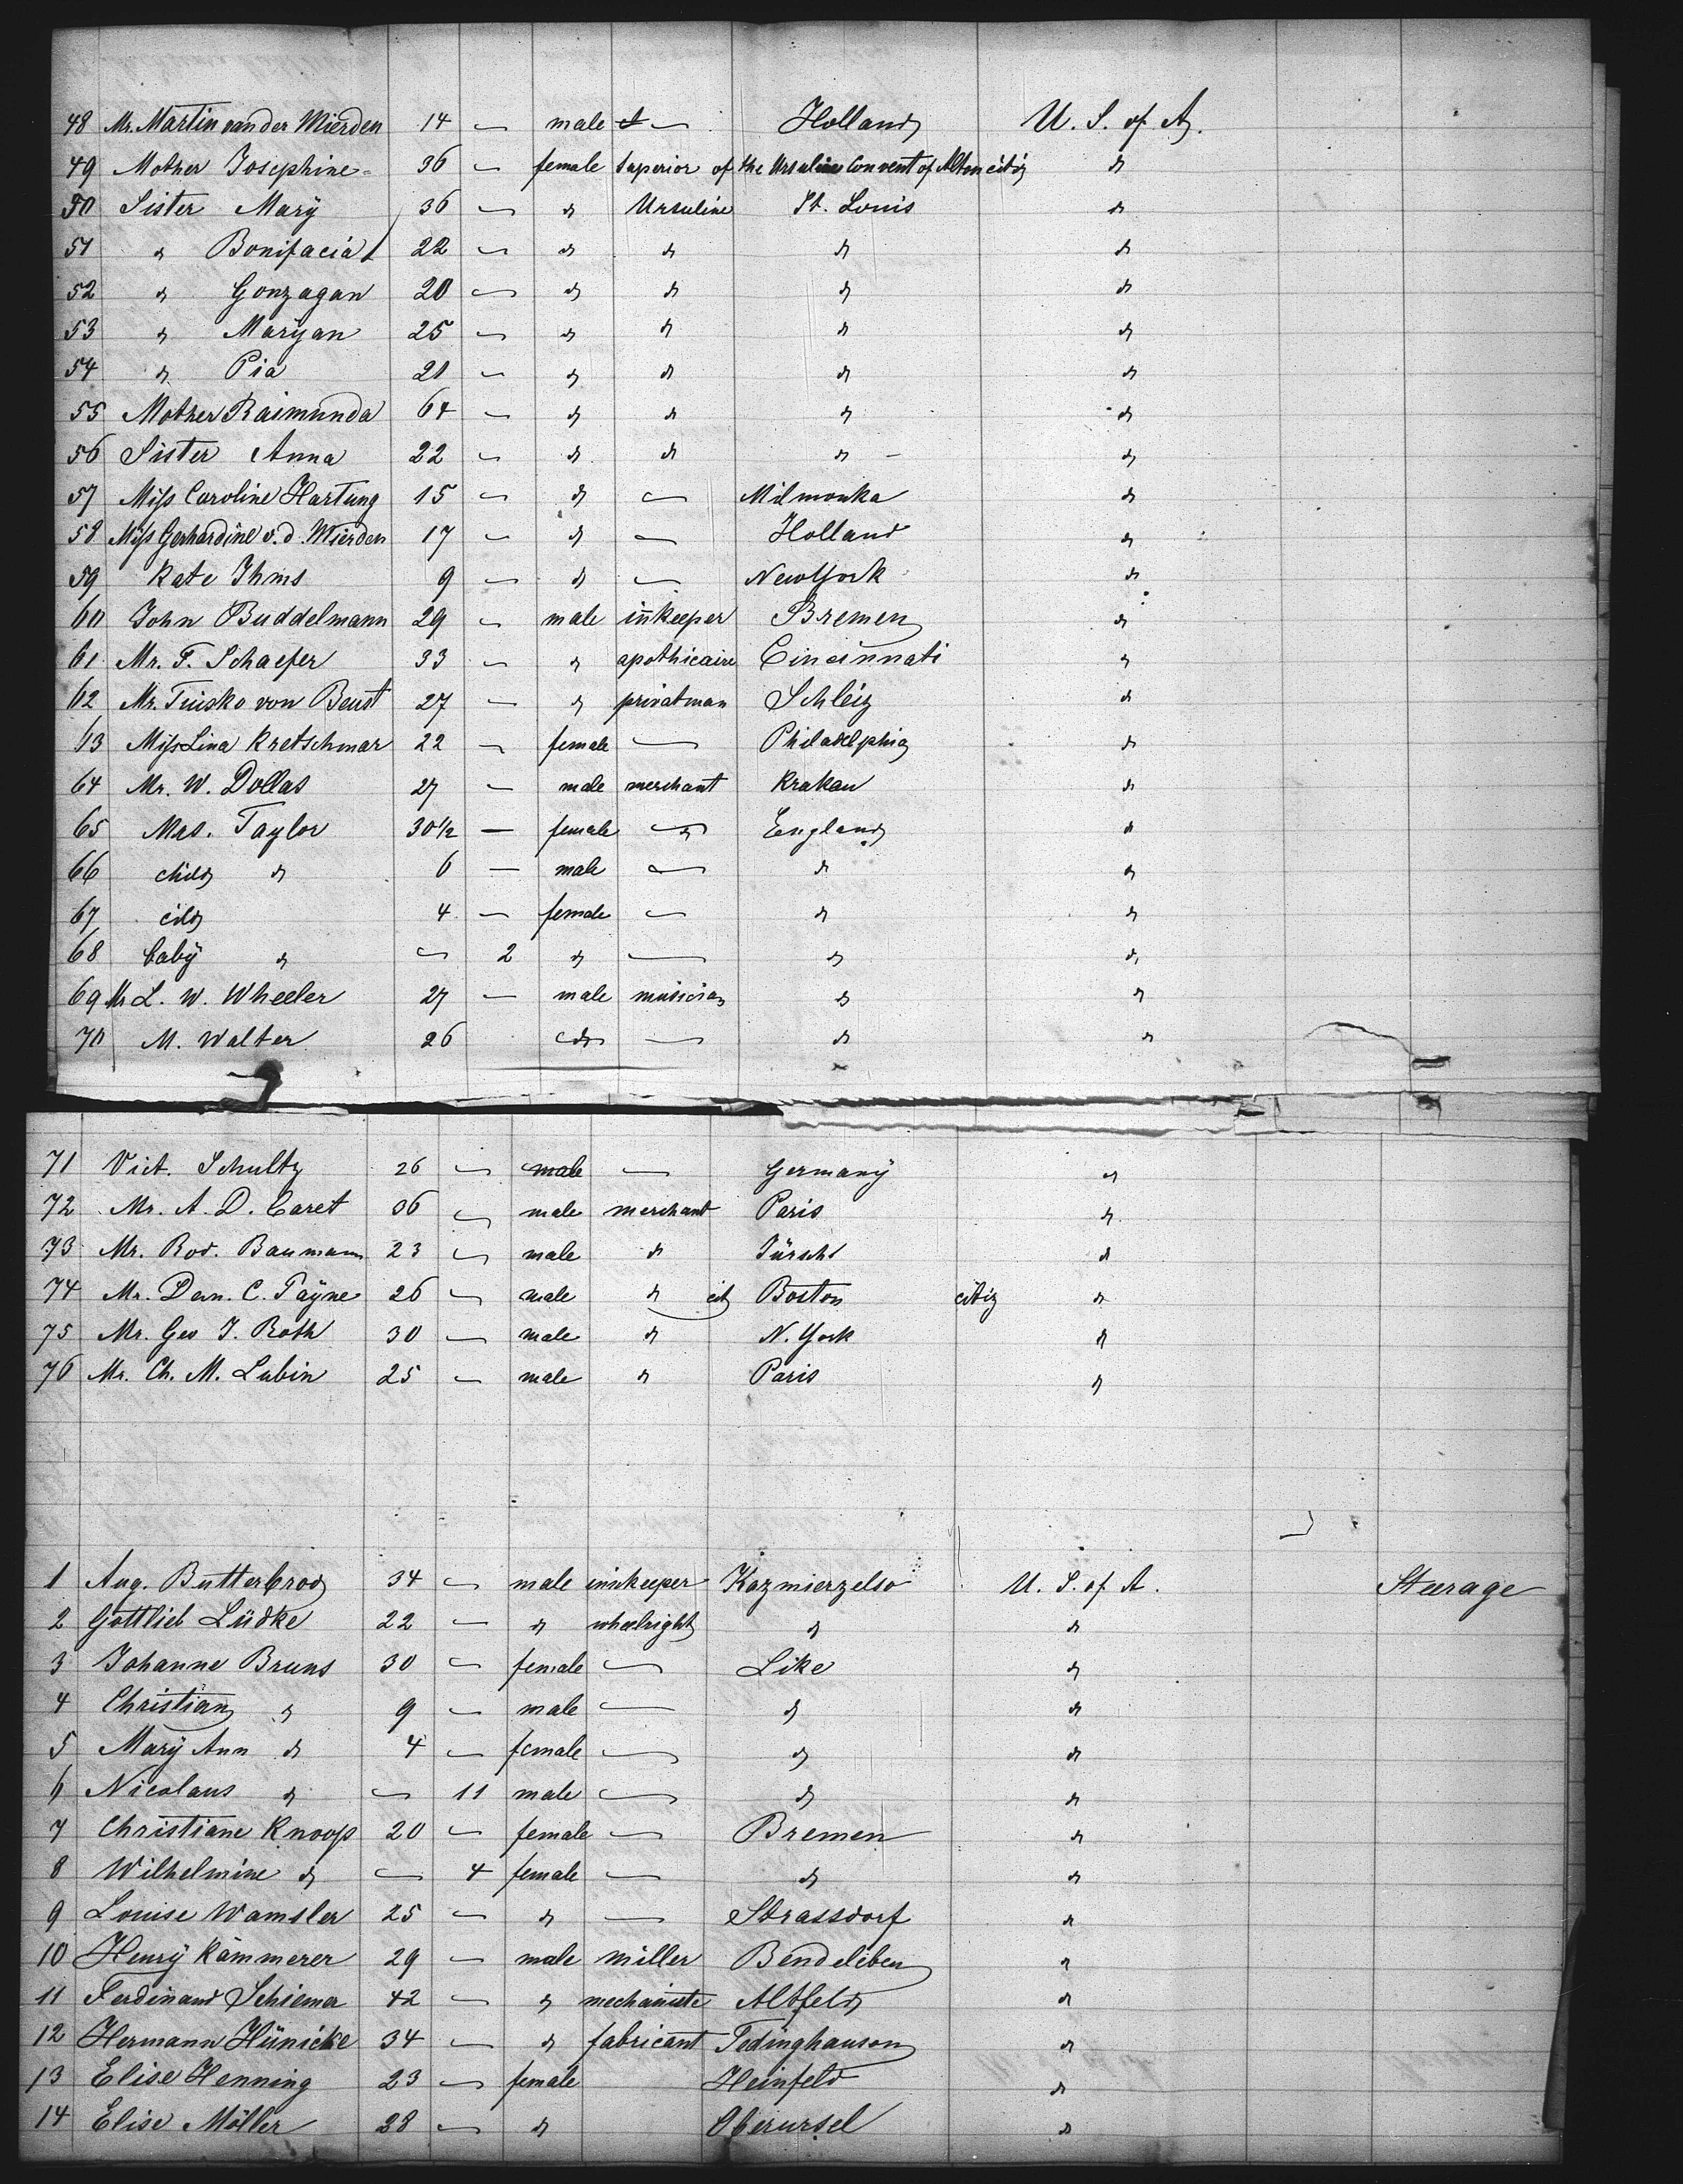 48 Mr. Martin van der Wierden 14 — male — Holland U. S. of A.
49 Mother Josephine 36 — female Superior of the Ursuline Convent of Alton city do
50 Sister Mary 36 — do Ursuline St. Louis do
51 do Bonifacia 22 — do do do do
52 do Gonzagan 20 — do do do do
53 do Maryan 25 — do do do do
54 do Pia 21 — do do do do
55 Mother Raimunda 64 — do do do do
56 Sister Anna 22 — do do do do
57 Miss Caroline Hartung 15 — do — Milwouka do
58 Miss Gerhardine v. d. Wierden 17 — do — Holland do
59 Kate Ihms 9 — do — New York do
60 John Buddelmann 29 — male inkeeper Bremen do
61 Mr. F. Schaefer 33 — do apothicaire Cincinnati do
62 Mr. Tuisko von Beust 27 — do privatman Schleiz do
63 Miss Lina Kretschmar 22 — female — Philadelphia do
64 Mr. W. Dollas 27 — male merchant Krakau do
65 Mrs. Taylor 30 1/2 — female — England do
66 child do 6 — male — do do
67 cild 4 — female — do do
68 baby do — 2 do — do do
69 Mr L. W. Wheeler 27 — male musician do do
70 M. Walter 26 do — do do
71 Vict. Schultz 26 — male — Germany do
72 Mr. A. D. Caret 36 — male merchant Paris do
73 Mr. Rod. Baumann 23 — male do do
74 Mr. Dan. C. Payne 26 — male do cit Boston citiz do
75 Mr. Geo J. Roth 30 — male do N. York do
76 Mr. Ch. M. Lubin 25 — male do Paris do
1 Aug. Butterbrod 34 — male innkeeper Kazmierzelso U. S. of A. Steerage
2 Gottlieb Lüdke 22 — do wheelright do do
3 Johanne Bruns 30 — female — Like do
4 Christian do 9 — male — do do
5 Mary Ann do 4 — female — do do
6 Nicolaus do — 11 male — do do
7 Christiane Knoop 20 — female — Bremen do
8 Wilhelmine do — 4 female — do do
9 Louise Wamsler 25 — do — Strassdorf do
10 Henry Kämmerer 29 — male miller Bendeleben do
11 Ferdinand Schiemer 42 — do mechaniste Altfeld do
12 Hermann Hünicke 34 — do fabricant Tedinghausen do
13 Elise Henning 23 — female Heinfeld do
14 Elise Möller 28 — do Oberursel do